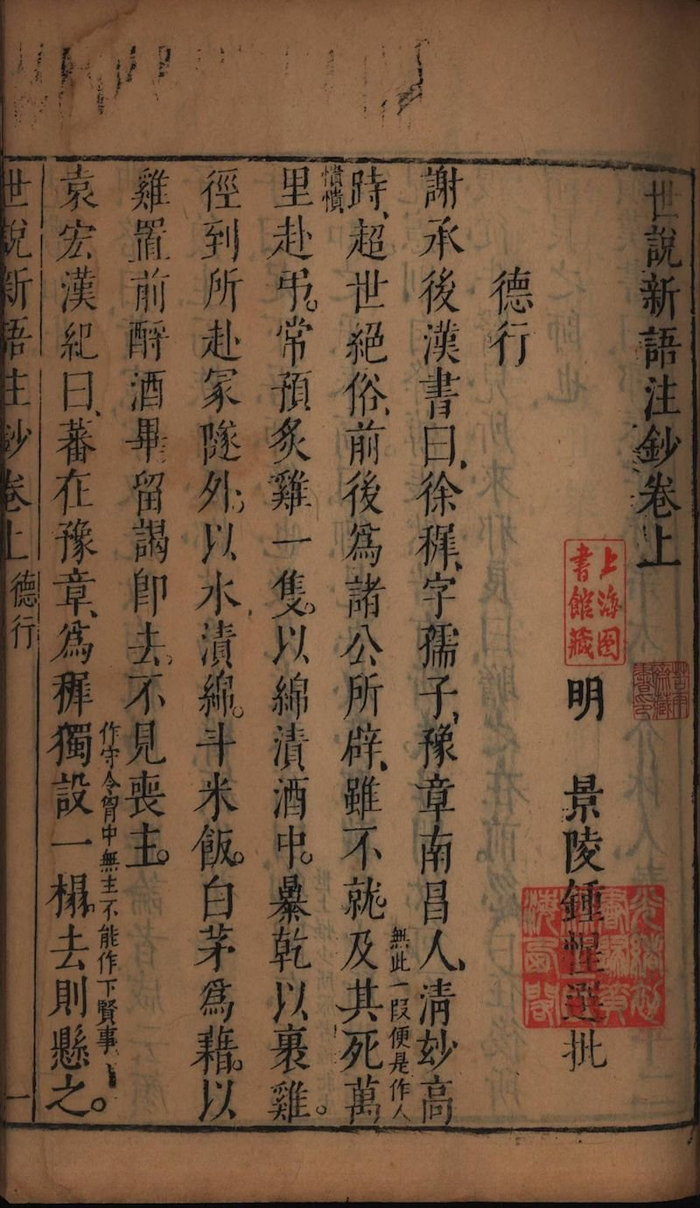 世說新語注鈔卷上
明 景陵鍾惺選批
上海图
書館藏
德行
謝承後漢書曰、徐穉、字孺子、豫章南昌人、清妙高
時、超世絕俗、前後爲諸公所辟、雖不就。及其死萬
無此一段便是作人
憒憒
里赴弔。常預炙雞一隻。以綿漬酒中。曝乾以裹雞。
徑到所赴冢隧外。以水漬綿。斗米飯。白茅爲藉。以
雞置前酹酒畢留謁即去。不見喪主。
袁宏漢紀曰、蕃在豫章、爲穉獨設一榻。去則懸之。
作守令胷中無主不能作下賢事
世說新語注鈔卷上 德行 一